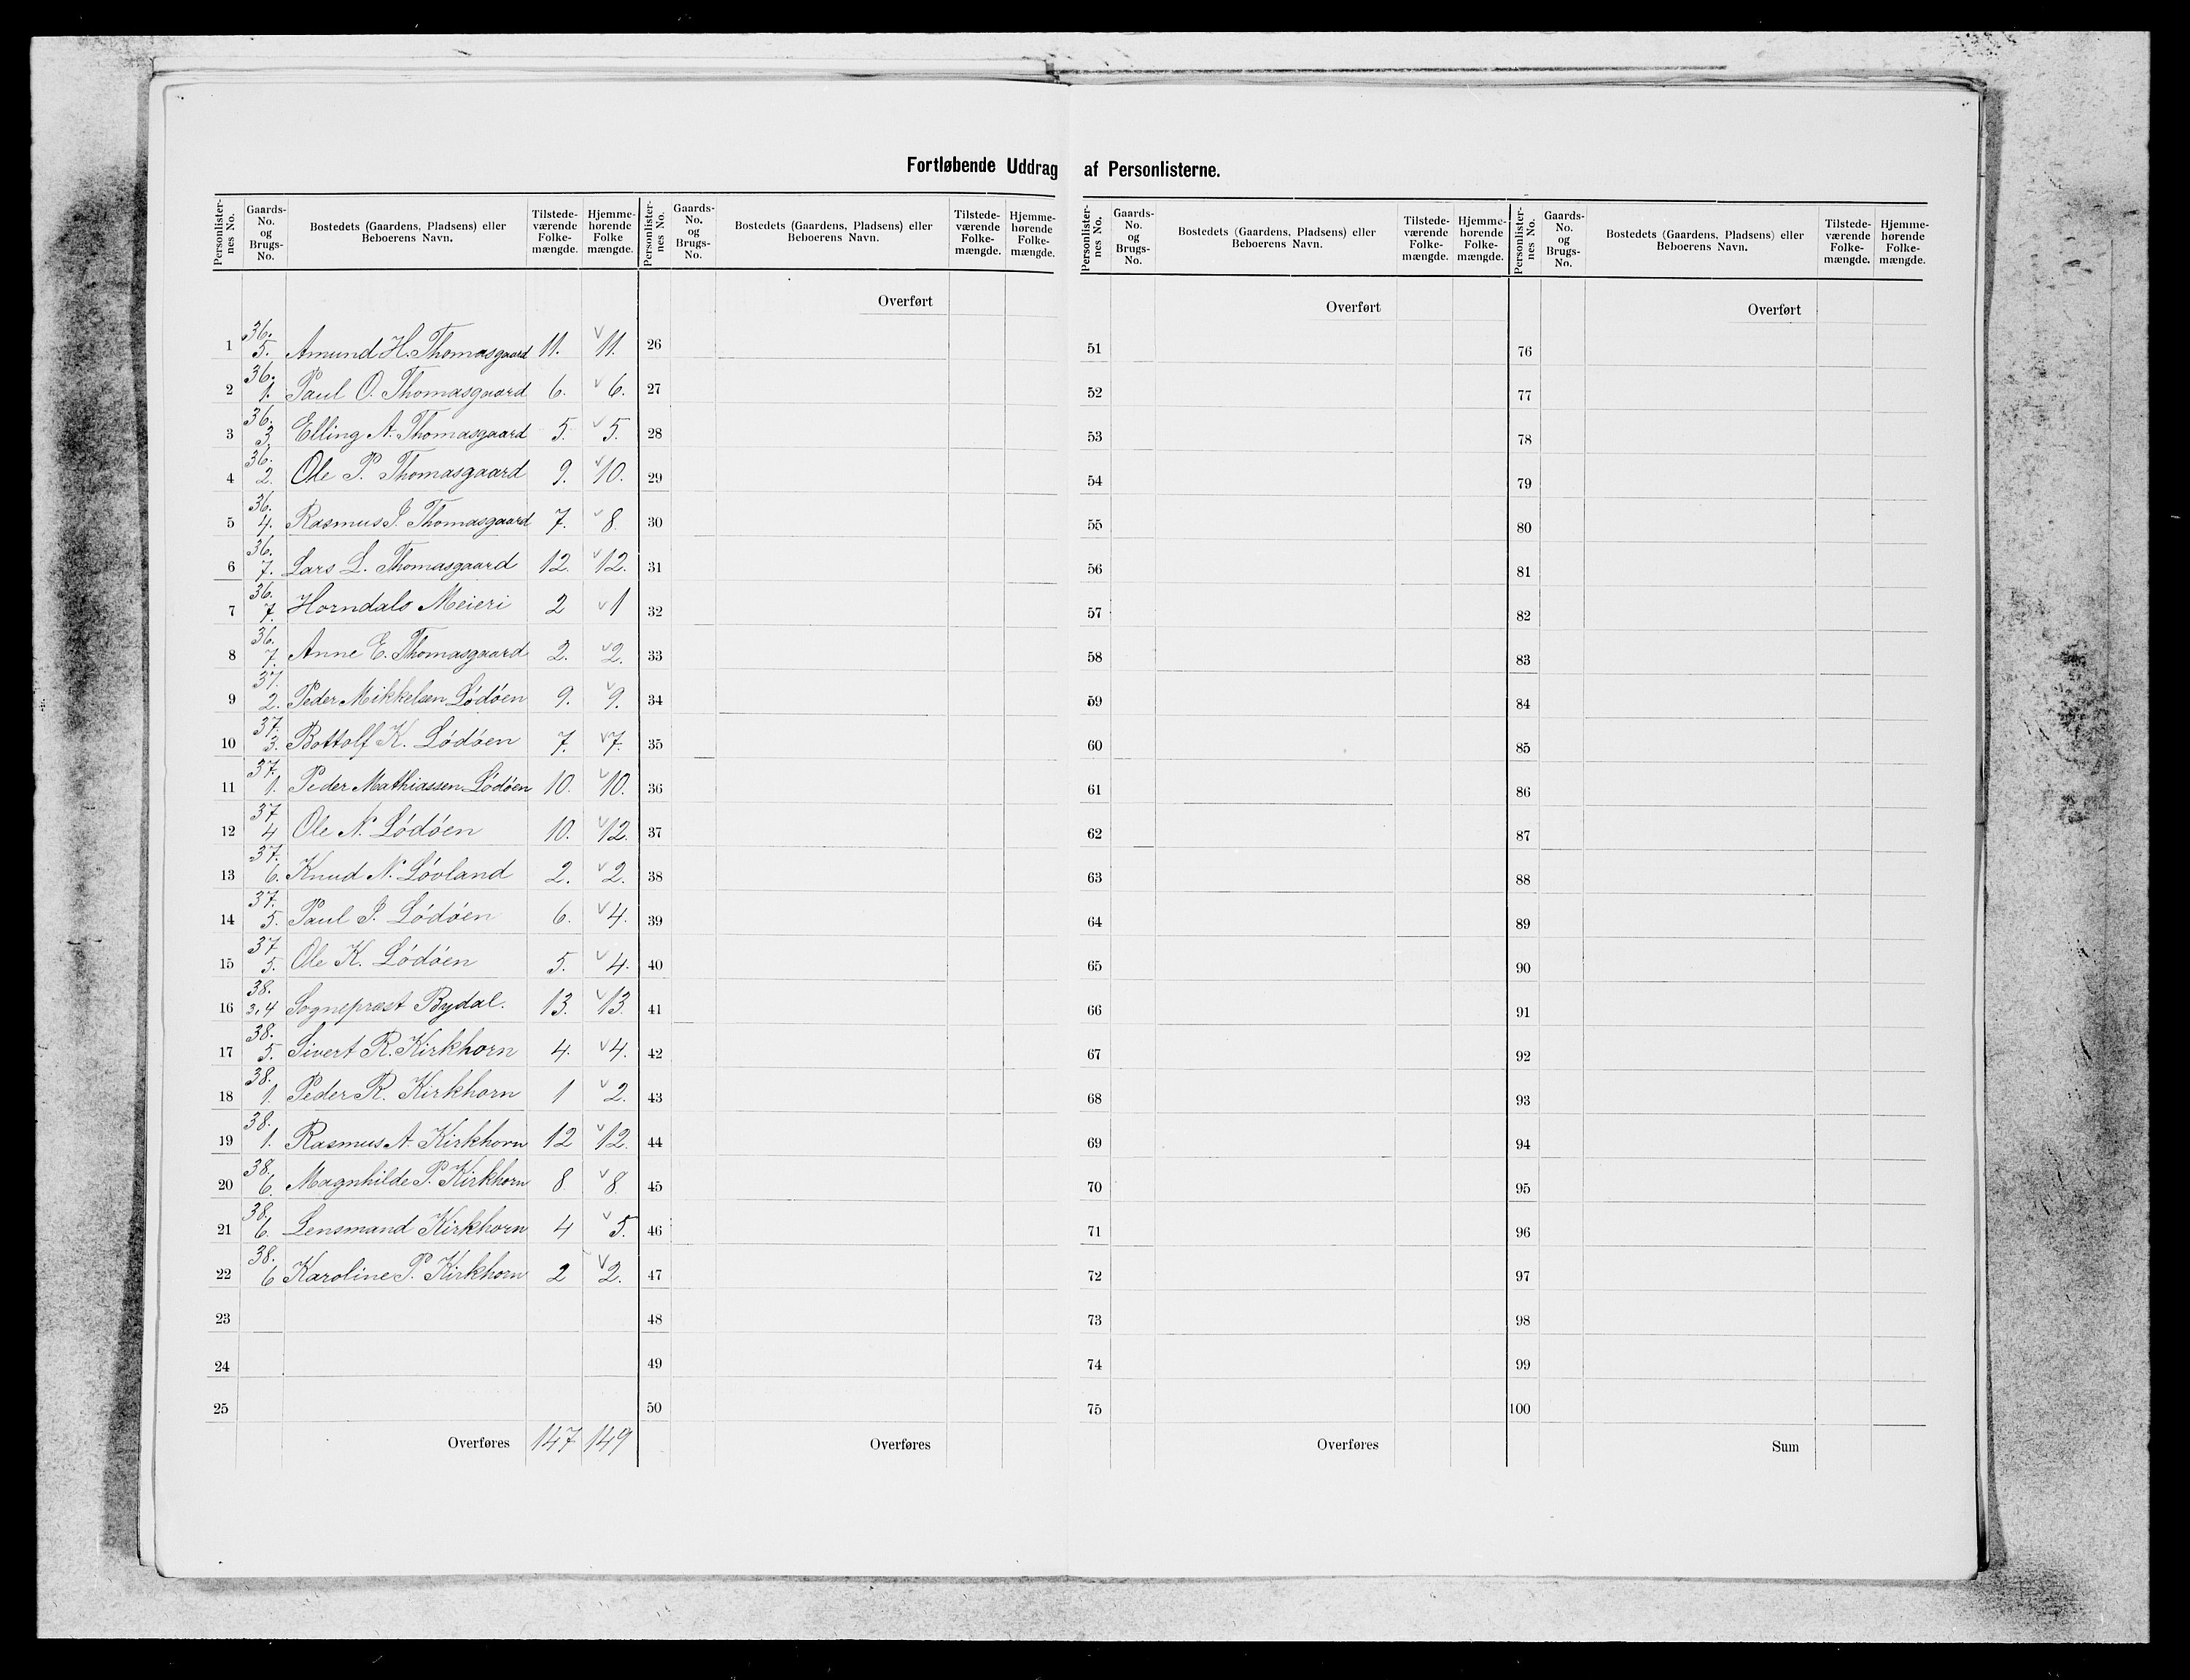 Fortløbende Uddrag af Personlisterne.
Personlister-nes No. Gaards-No. og Brugs-No. Bostedets (Gaardens, Pladsens) eller Beboerens Navn. Tilstede-værende Folke-mængde. Hjemme-hørende Folke mængde.
1 36. 5. Amund H. Thomasgaard 11. v 11.
2 36. 1. Paul O. Thomasgaard 6. v 6.
3 36. 3. Elling A. Thomasgaard 5. v 5.
4 36. 2. Ole P. Thomasgaard 9. v 10.
5 36. 4. Rasmus J. Thomasgaard 7. v 8.
6 36. 7. Lars L. Thomasgaard 12. v 12.
7 36. 7. Horndals Meieri 2 v 1
8 36. 7. Anne E. Thomasgaard 2. v 2.
9 37. 2. Peder Mikkelsen Lödöen 9. v 9.
10 37. 3. Bottolf K. Lödöen 7. v 7.
11 37. 1. Peder Mathiassen Lödöen 10. v 10.
12 37 4 Ole N. Lödöen 10. v 12.
13 37. 6. Knud N. Lövland 2. v 2.
14 37. 5. Paul J. Lödöen 6. v 4.
15 37 5. Ole K. Lödöen 5. v 4.
16 38. 3,4 Sogneprest Bydal. 13. v 13.
17 38. 5. Sivert R. Kirkhorn 4. v 4.
18 38. 1. Peder R. Kirkhorn 1 v 2.
19 38. 1. Rasmus A. Kirkhorn 12 v 12.
20 38. 6. Magnhilde P. Kirkhorn 8 v 8.
21 38. 6. Lensmand Kirkhorn 4 v 5.
22 38. 6 Karoline P. Kirkhorn 2 v 2.
23
24
25
Overføres 147 149
Personlister-nes No. Gaards-No. og Brugs-No. Bostedets (Gaardens, Pladsens) eller Beboerens Navn. Tilstede-værende Folke-mængde. Hjemme-hørende Folke-mængde.
Overført
26
27
28
29
30
31
32
33
34
35
36
37
38
39
40
41
42
43
44
45
46
47
48
49
50
Overføres
Personlister-nes No. Gaards-No. og Brugs-No. Bostedets (Gaardens, Pladsens) eller Beboerens Navn. Tilstede-værende Folke-mængde. Hjemme-hørende Folke-mængde.
Overført
51
52
53
54
55
56
57
58
59
60
61
62
63
64
65
66
67
68
69
70
71
72
73
74
75
Overføres
Personlister-nes No. Gaards-No. og Brugs-No. Bostedets (Gaardens, Pladsens) eller Beboerens Navn. Tilstede-værende Folke-mængde. Hjemme-hørende Folke-mængde.
Overført
76
77
78
79
80
81
82
83
84
85
86
87
88
89
90
91
92
93
94
95
96
97
98
99
100
Sum